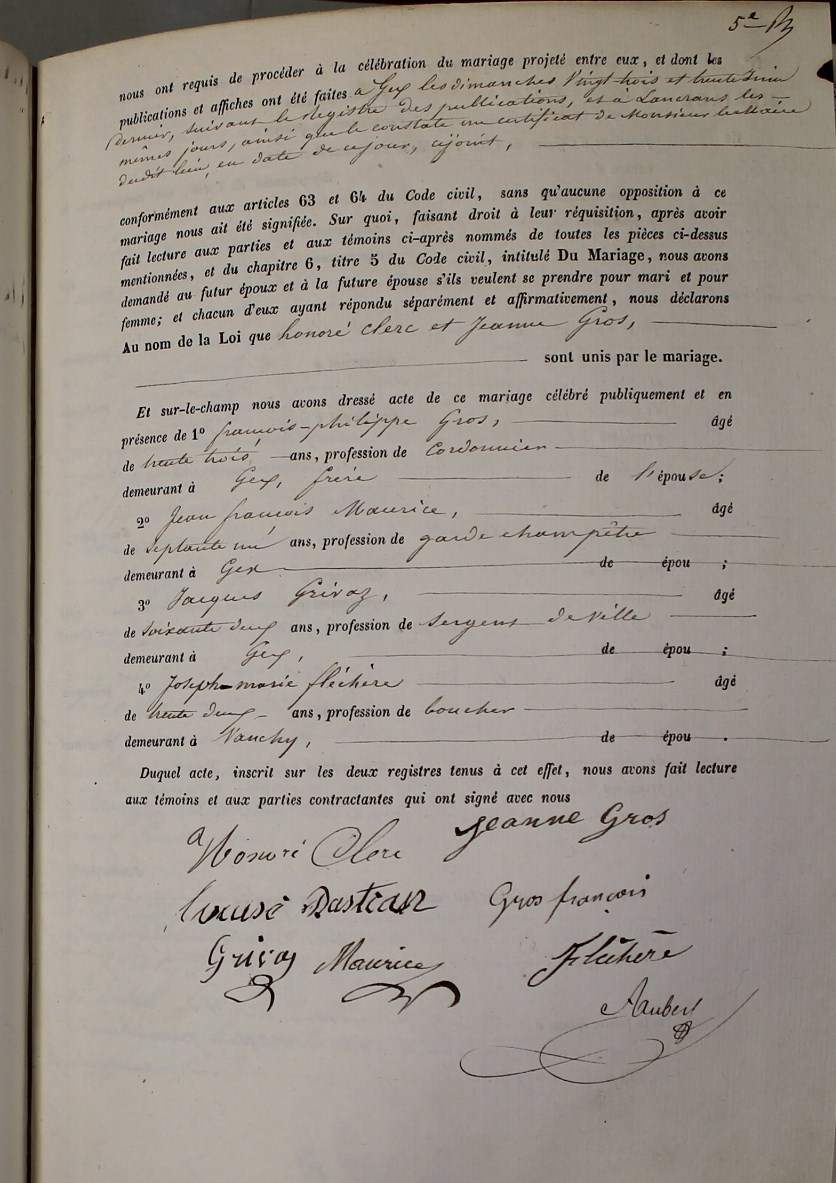 5e
nous ont requis de procéder à la célébration du mariage projeté entre eux, et dont les
publications et affiches ont été faites a Gex les dimanches vingt trois et trente Juin
dernier, suivant le registre des publications, et à Lancrans les
mêmes jours, ainsi que le constate un certificat de Monsieur le Maire
dudit lieu, en date de ce jour, cijoint,
conformément aux articles 63 et 64 du Code civil, sans qu'aucune opposition à ce
mariage nous ait été signifiée. Sur quoi, faisant droit à leur réquisition, après avoir
fait lecture aux parties et aux témoins ci-après nommés de toutes les pièces ci-dessus
mentionnées, et du chapitre 6, titre 5 du Code civil, intitulé Du Mariage, nous avons
demandé au futur époux et à la future épouse s'ils veulent se prendre pour mari et pour
femme; et chacun d'eux ayant répondu séparément et affirmativement, nous déclarons
Au nom de la Loi que honoré clerc et Jeanne Gros,
sont unis par le mariage.
Et sur-le-champ nous avons dressé acte de ce mariage célébré publiquement et en
présence de 1º francois-philippe Gros, âgé
de trente trois, ans, profession de Cordonnier
demeurant à Gex, frère de l'épouse;
2º Jean françois Maurice, âgé
de septante un ans, profession de garde champêtre
demeurant à Gex de épou ;
3º Jacques Grivaz, âgé
de soixante deux ans, profession de Sergent de Ville
demeurant à Gex, de épou ;
4º Joseph-marie fléchère âgé
de trente deux ans, profession de boucher
demeurant à Vanchy, de épou .
Duquel acte, inscrit sur les deux registres tenus à cet effet, nous avons fait lecture
aux témoins et aux parties contractantes qui ont signé avec nous
Honoré Clerc Jeanne Gros
Dastian Gros françois
Grivaz Maurice Fléchère